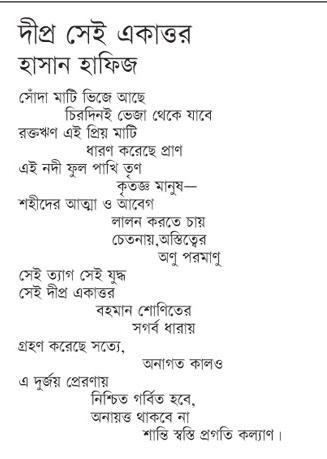 দীপ্র সেই একাত্তর
হাসান হাফিজ
সোঁদা মাটি ভিজে আছে
চিরদিনই ভেজা থেকে যাবে
রক্তঋণ এই প্রিয় মাটি
ধারণ করেছে প্রাণ
এই নদী ফুল পাখি তৃণ
কৃতজ্ঞ মানুষ—
শহীদের আত্মা ও আবেগ
লালন করতে চায়
চেতনায়,অস্তিত্বের
অণু পরমাণু
সেই ত্যাগ সেই যুদ্ধ
সেই দীপ্র একাত্তর
বহমান শোণিতের
সগর্ব ধারায়
গ্রহণ করেছে সত্যে,
অনাগত কালও
এ দুর্জয় প্রেরণায়
নিশ্চিত গর্বিত হবে,
অনায়ত্ত থাকবে না
শান্তি স্বস্তি প্রগতি কল্যাণ।